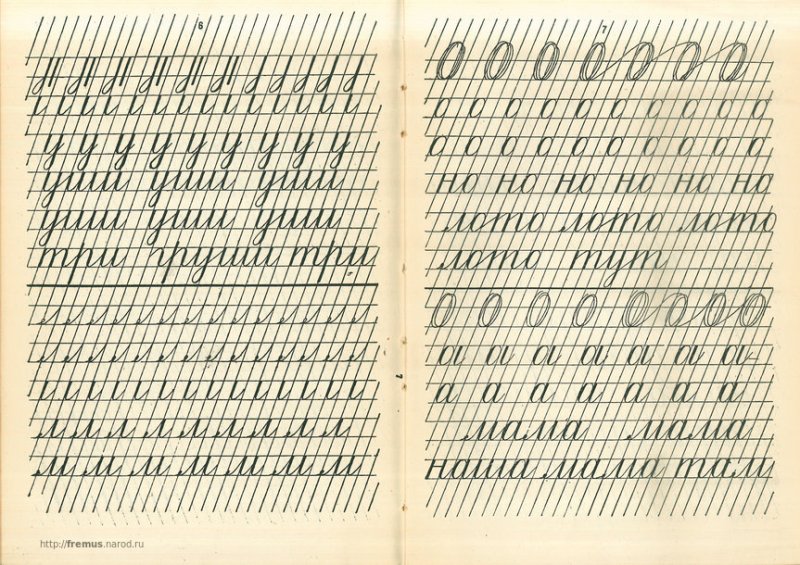 6
у у у у у у у у у
уши уши уши
уши уши уши
три груши три
м м м м м м м
7
О О О О О О О
о о о о о о о о о о
о о о о о о о о о о
но но но но но но
лото лото лото
лото тут
О О О О О О О О
а а а а а а а
а а а а а а а
мама мама
наша мама там
http://fremus.narod.ru